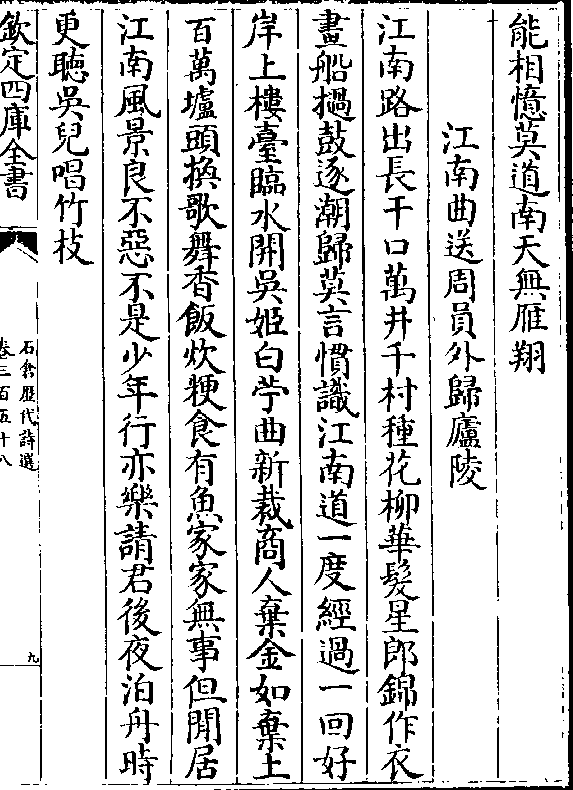 能相憶莫道南天無雁翔
江南曲送周員外歸廬陵
江南路出長干口萬井千村種花柳華髮星郎錦作衣
畫船撾鼓逐潮歸莫言慣識江南道一度經過一回好
岸上樓臺臨水開吳姬白苧曲新裁商人棄金如棄土
百萬壚頭換歌舞香飯炊粳食有魚家家無事但閒居
江南風景良不惡不是少年行亦樂請君後夜泊舟時
更聽吳兒唱竹枝
欽定四庫全書
石倉歷代詩選
卷三百五十八
九